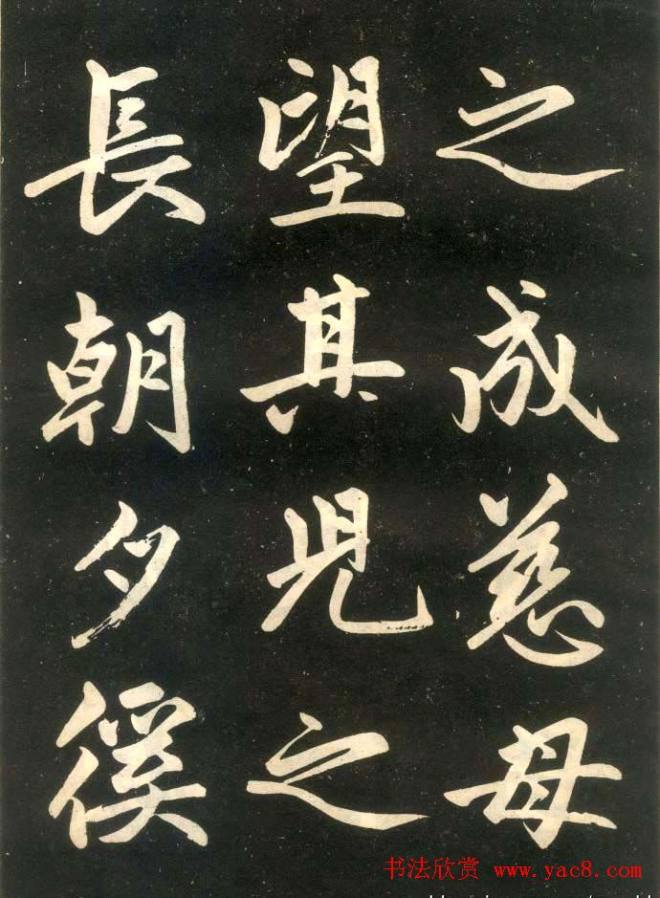 之成慈母
望其兒之
長朝夕徯
书法欣赏 www.yac8.com